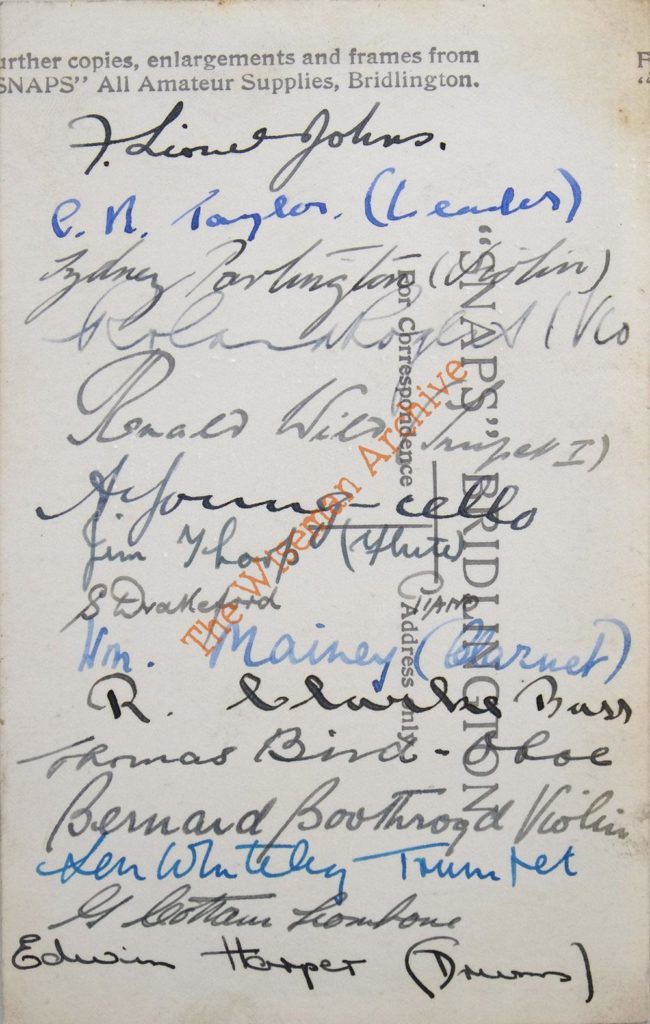 urther copies, enlargements and frames from
SNAPS" All Amateur Supplies, Bridlington.
F. Lionel Johns.
C. N. Taylor. (Leader)
Sydney Partington (Violin)
Ronald Wild (Trumpet I)
A. Young - cello
Jim Thorp (Flute)
S Drakeford PIANO
Wm. Mainey (Clarinet)
R. Clarke Bass
Thomas Bird - Oboe
Bernard Boothroyd Violin
Len Whiteley Trumpet
G Cottam Trombone
Edwin Harper (Drums)
"SNAPS" BRIDLINGTON
For Correspondence
Address Only
The Wiseman Archive